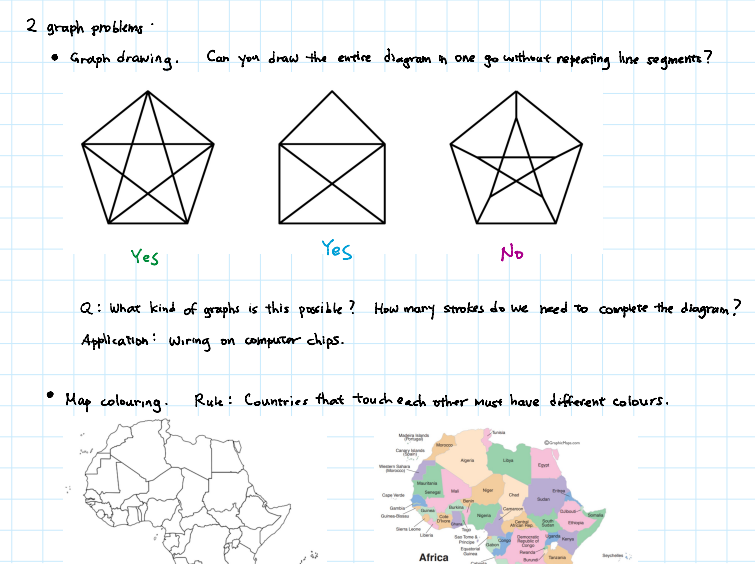 2 graph problems.
• Graph drawing. Can you draw the entire diagram in one go without repeating line segments?
Yes
Yes
No
Q: What kind of graphs is this possible? How many strokes do we need to complete the diagram?
Application: Wiring on computer chips.
• Map colouring. Rule: Countries that touch each other must have different colours.
Madeira Islands
(Portugal)
Tunisia
©GraphicMaps.com
Morocco
Canary Islands
(Spain)
Algeria
Libya
Egypt
Western Sahara
(Morocco)
Mauritania
Mali
Niger
Chad
Sudan
Eritrea
Cape Verde
Senegal
Gambia
Guinea-Bissau
Guinea
Burkina
Benin
Djibouti
Somalia
Sierra Leone
Cote
D'Ivoire
Ghana
Nigeria
Cameroon
Central
African Rep.
South
Sudan
Ethiopia
Liberia
Togo
Sao Tome &
Principe
Equatorial
Guinea
Gabon
Congo
Democratic
Republic of
Congo
Uganda
Kenya
Rwanda
Burundi
Tanzania
Seychelles
Africa